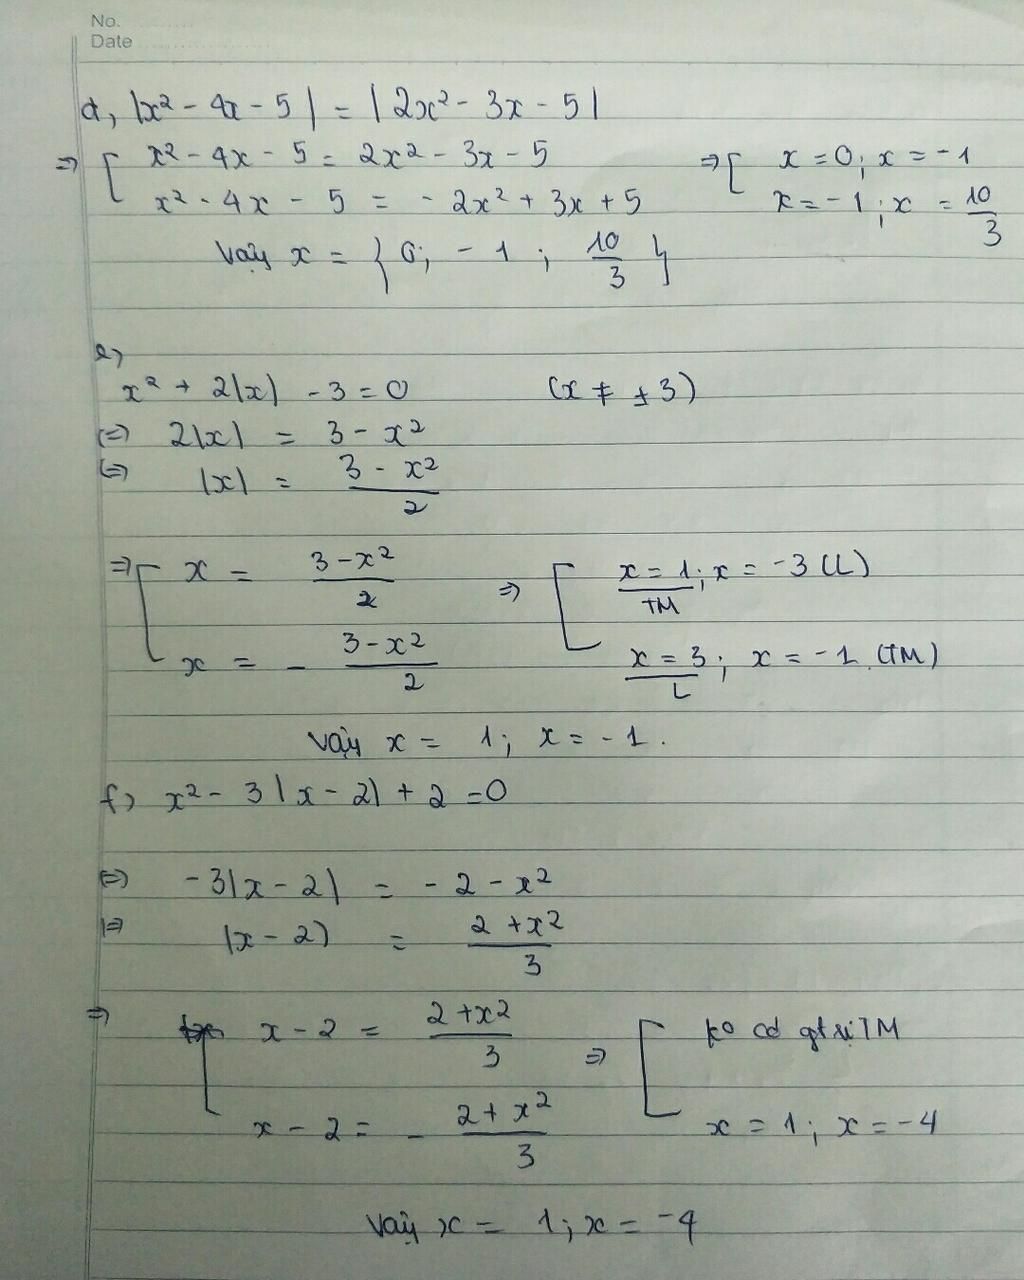 No.
Date
d, |x² - 4x - 5| = |2x² - 3x - 5|
=> [ x² - 4x - 5 = 2x² - 3x - 5 => [ x = 0; x = -1
x² - 4x - 5 = -2x² + 3x + 5 x = -1; x = 10/3
Vậy x = { 0; -1; 10/3 }
e,
x² + 2|x| - 3 = 0 (x ≠ ±3)
(=) 2|x| = 3 - x²
(=) |x| = (3 - x²)/2
=> [ x = (3 - x²)/2 => [ x = 1; x = -3 (L)
TM
x = - (3 - x²)/2 x = 3; x = -1 (TM)
L
Vậy x = 1; x = -1.
f, x² - 3|x - 2| + 2 = 0
(=) -3|x - 2| = -2 - x²
(=) |x - 2| = (2 + x²)/3
=> [ x - 2 = (2 + x²)/3 => [ ko có gt x TM
x - 2 = - (2 + x²)/3 x = 1; x = -4
Vậy x = 1; x = -4